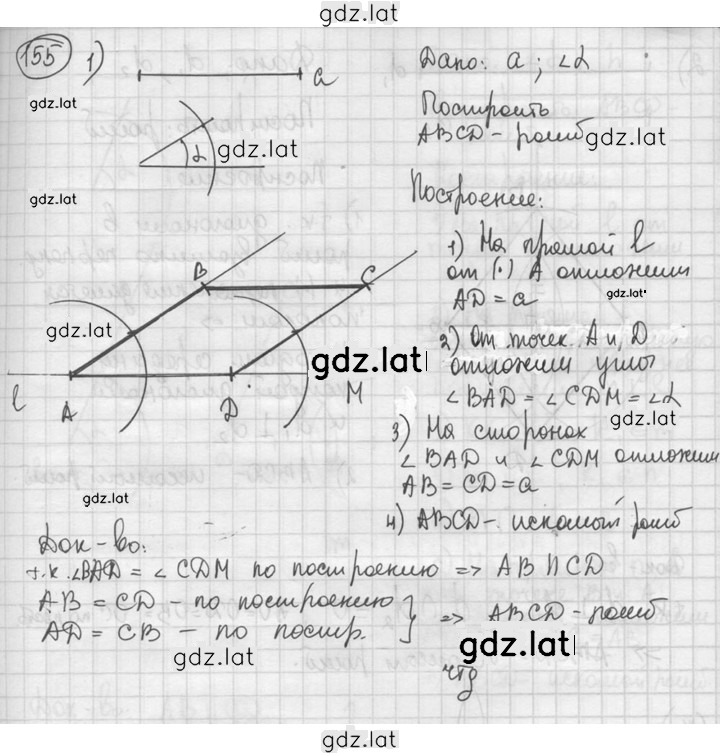 gdz.lat
155 1)
a
Дано: a ; ∠α
gdz.lat
α
gdz.lat
Построить
ABCD - ромб
gdz.lat
gdz.lat
Построение:
1) На прямой l
от (·) A отложим
AD = a
gdz.lat
B
C
gdz.lat
gdz.lat
l
A
D
M
2) От точек A и D
отложим углы
∠BAD = ∠CDM = ∠α
gdz.lat
3) На сторонах
∠BAD и ∠CDM отложим
AB = CD = a
gdz.lat
4) ABCD - искомый ромб
Док-во:
т.к. ∠BAD = ∠CDM по построению => AB ∥ CD
AB = CD - по построению
AD = CB - по постр.
=> ABCD - ромб
gdz.lat
gdz.lat
чтд
gdz.lat